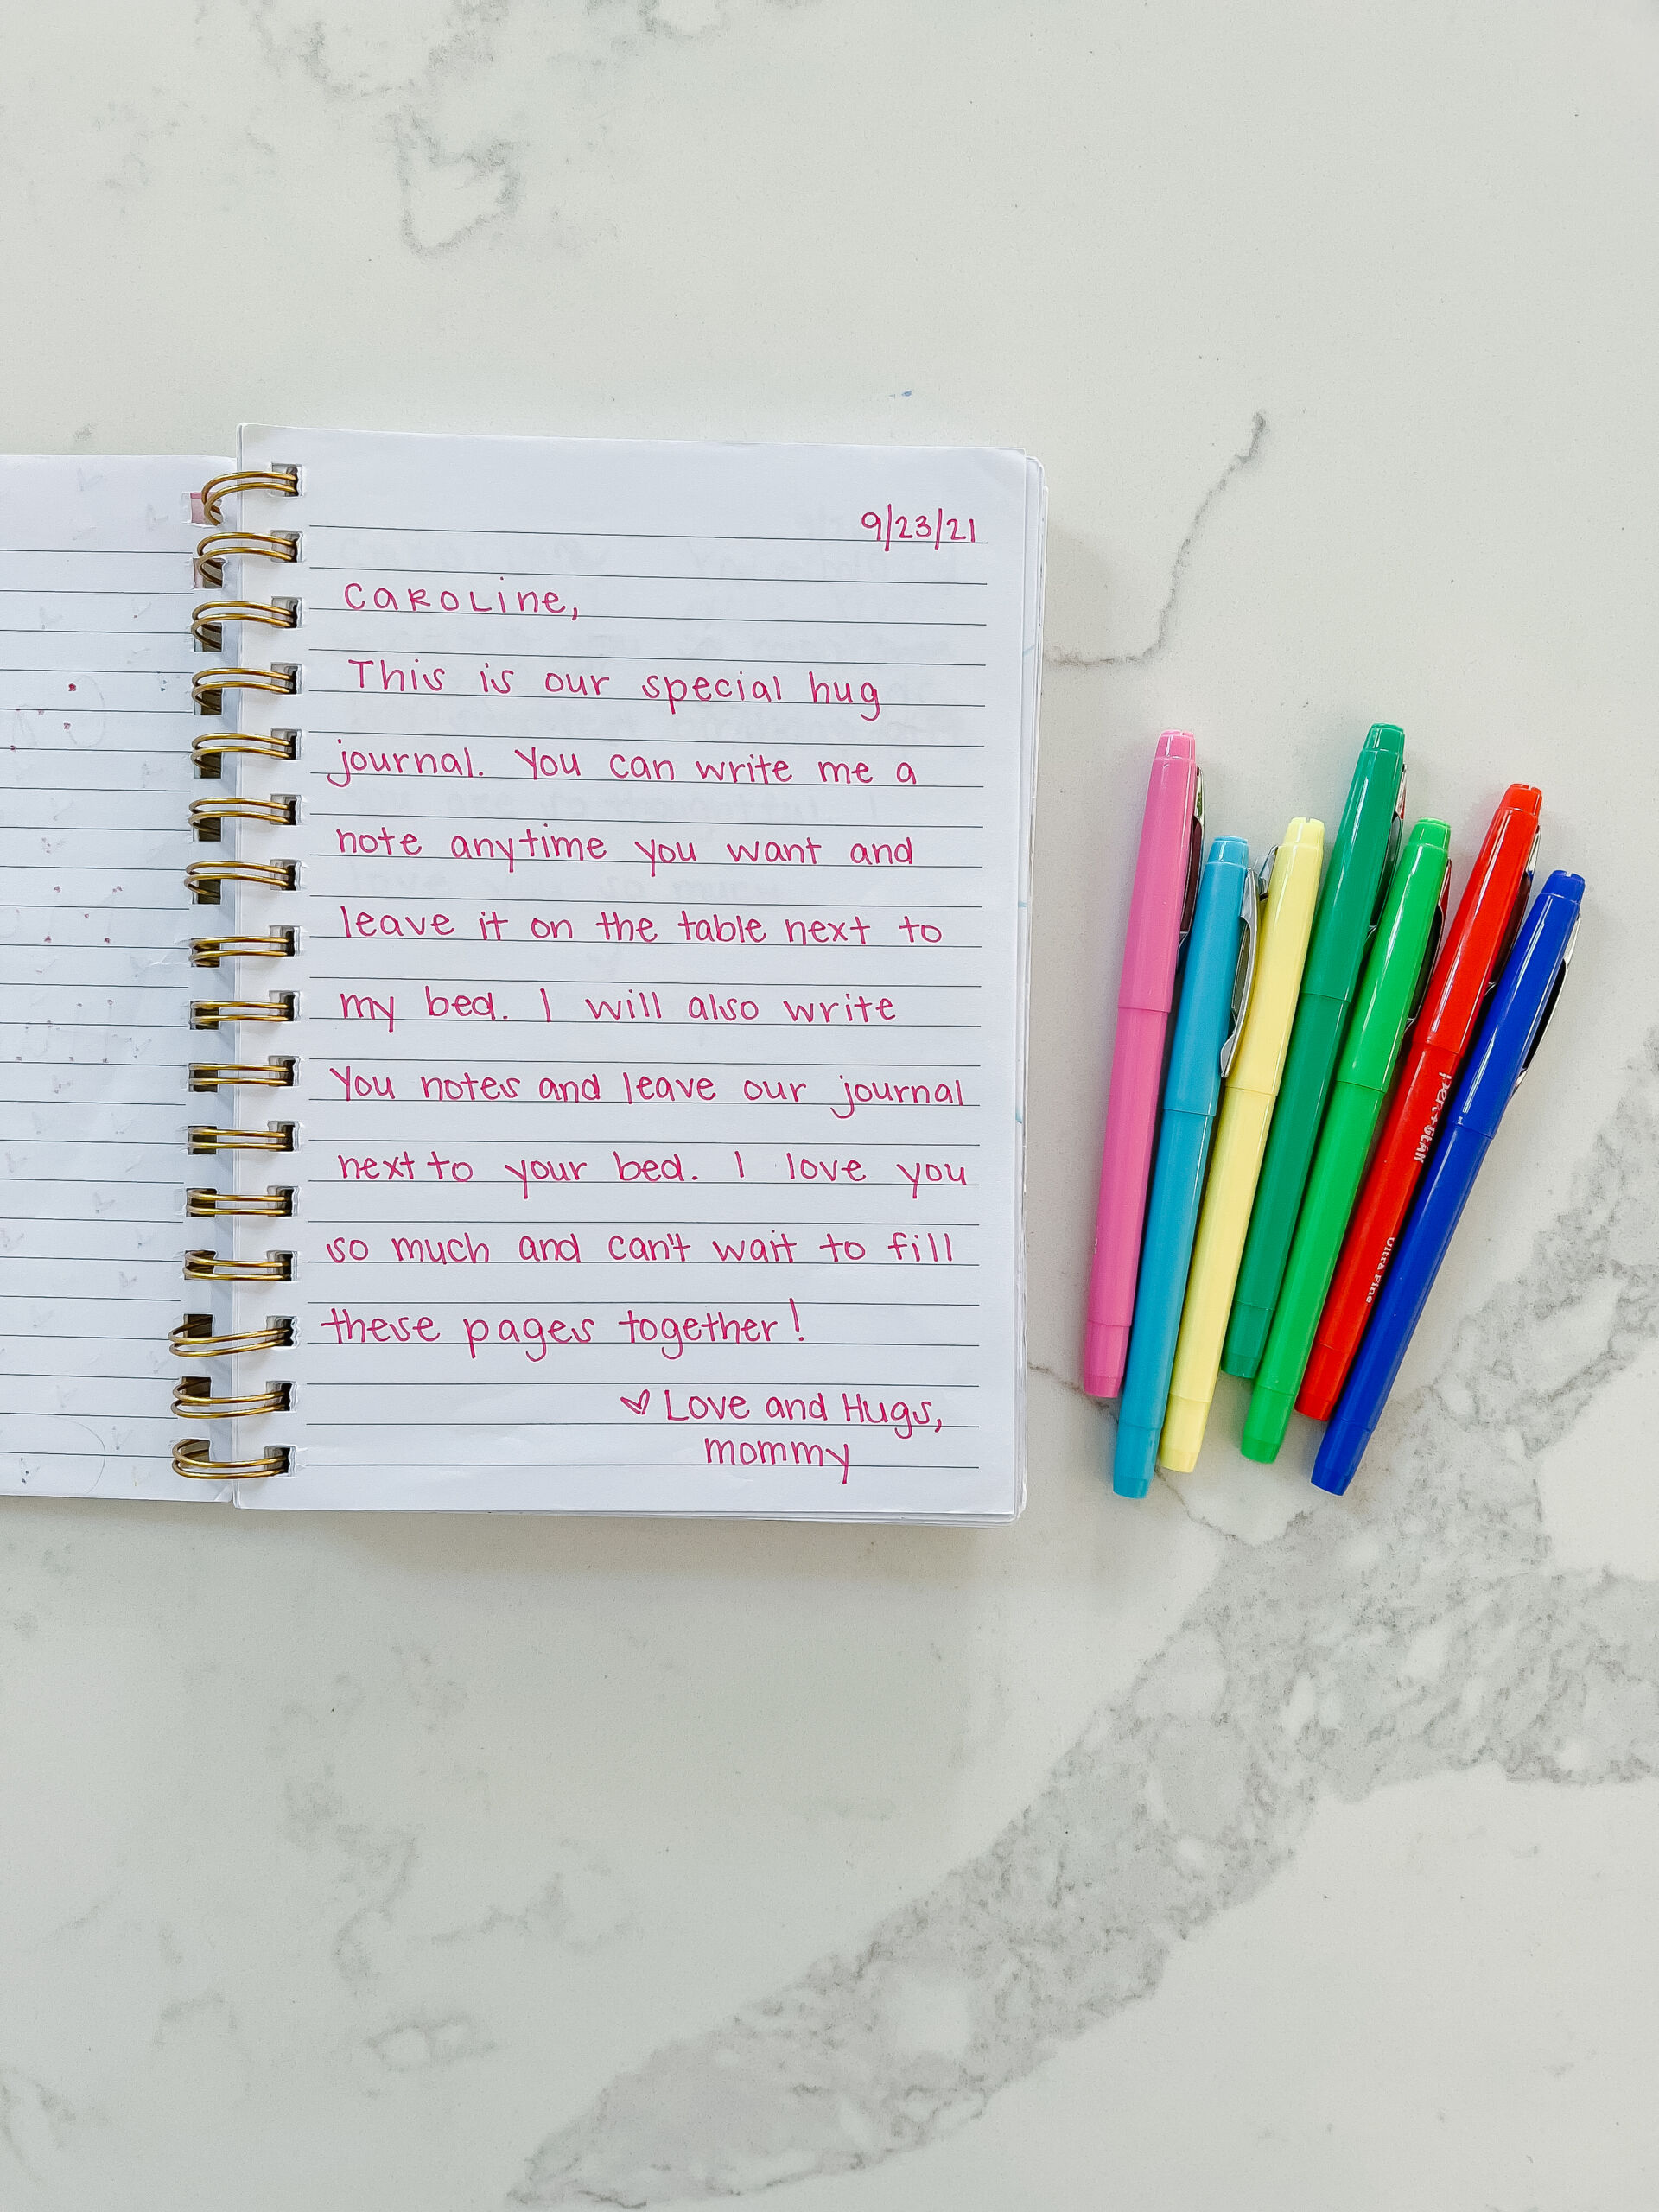 9/23/21
Caroline,
This is our special hug
journal. You can write me a
note anytime you want and
leave it on the table next to
my bed. I will also write
You notes and leave our journal
next to your bed. I love you
so much and can't wait to fill
these pages together!
♡ Love and Hugs,
mommy
pen+GEAR
Ultra Fine